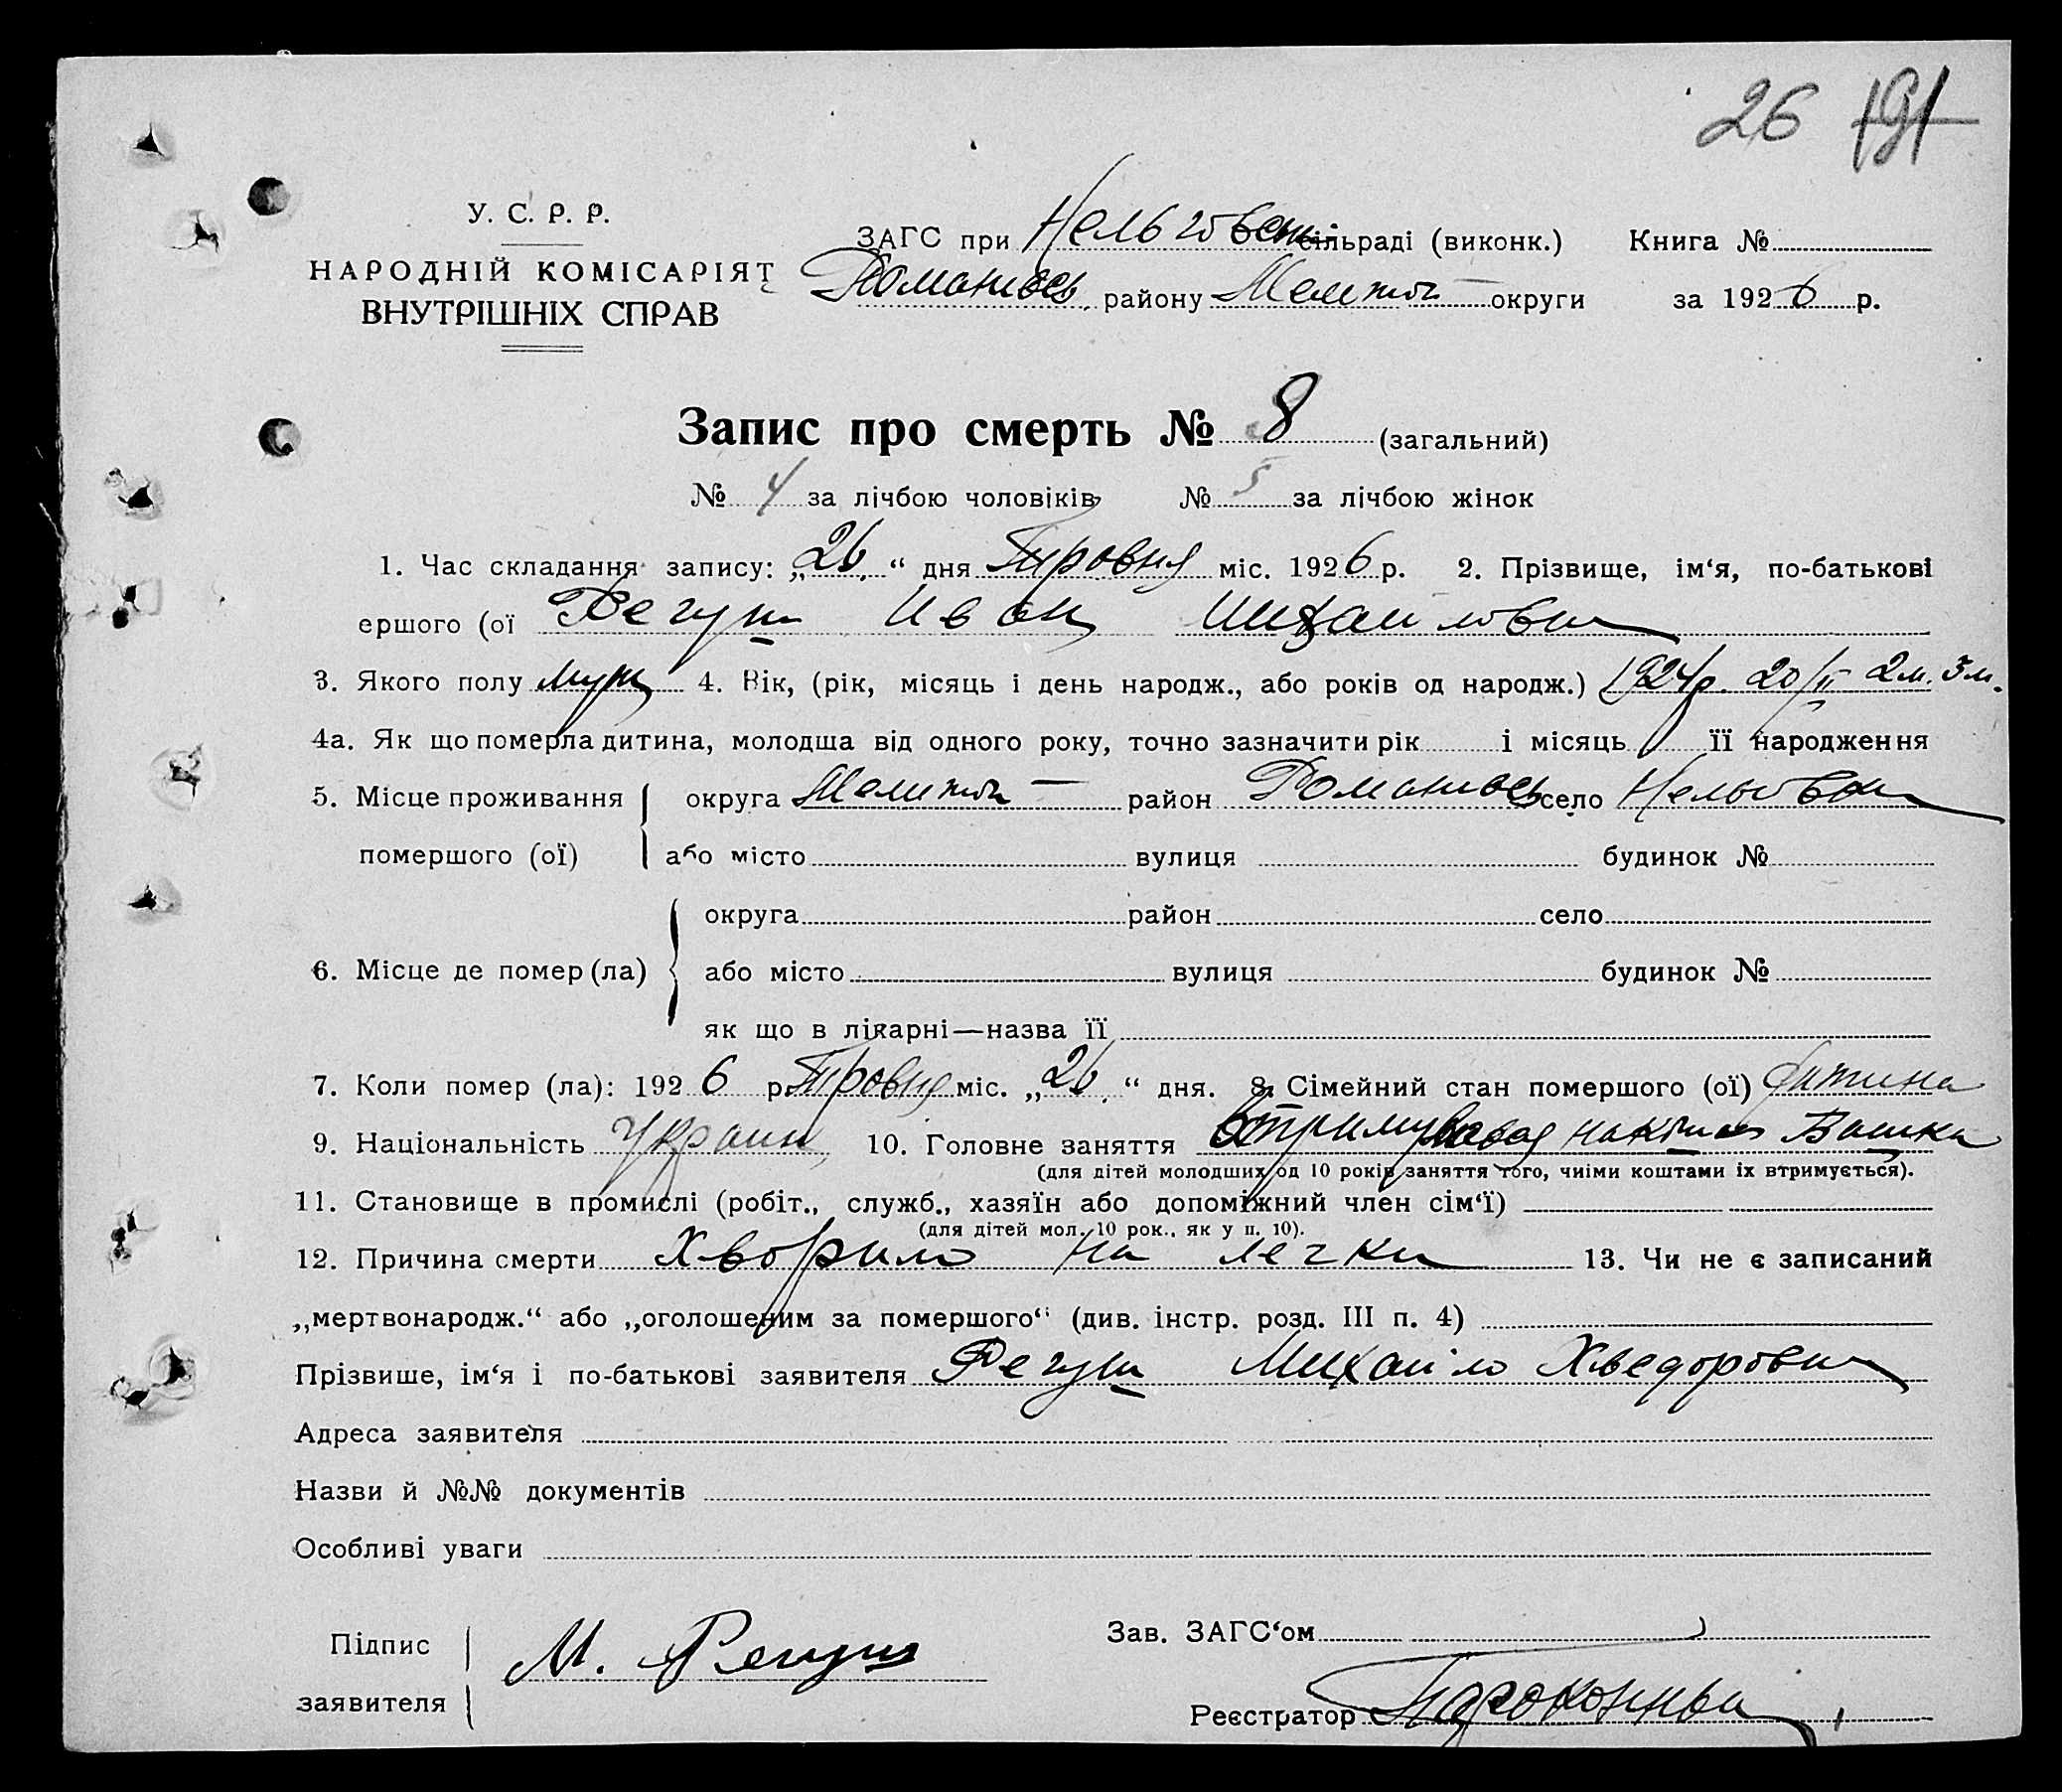 26 191
У. С. Р. Р.
НАРОДНІЙ КОМІСАРІЯТ
ВНУТРІШНІХ СПРАВ
ЗАГС при Нельговськ сільраді (виконк.) Книга №
Романівсь району Мелітоп округи за 1926 р.
Запис про смерть № 8 (загальний)
№ 4 за лічбою чоловіків № 5 за лічбою жінок
1. Час складання запису: „26“ дня Тровня міс. 1926 р. 2. Прізвище, ім‘я, по-батькові
ершого (ої Регуш Иван Михайлович
3. Якого полу муж 4. Вік, (рік, місяць і день народж., або років од народж.) 1924 р. 20/II 2 м. 3 м.
4а. Як що померла дитина, молодша від одного року, точно зазначити рік і місяць її народження
5. Місце проживання помершого (ої) округа Мелітоп район Романівсь село Нельговк
або місто вулиця будинок №
6. Місце де помер (ла) округа район село
або місто вулиця будинок №
як що в лікарні—назва її
7. Коли помер (ла): 1926 р. Тровня міс. „26“ дня. 8. Сімейний стан помершого (ої) дитина
9. Національність Украин 10. Головне заняття Батька
(для дітей молодших од 10 років заняття того, чиїми коштами їх втримується).
11. Становище в промислі (робіт., служб., хазяїн або допоміжний член сім‘ї)
(для дітей мол. 10 рок., як у п. 10).
12. Причина смерти Хворило на легки 13. Чи не є записаний
„мертвонародж.“ або „оголошеним за помершого“ (див. інстр. розд. III п. 4)
Прізвише, ім‘я і по-батькові заявителя Регуш Михайло Хведорович
Адреса заявителя
Назви й №№ документів
Особливі уваги
Підпис заявителя М. Регуш
Зав. ЗАГС‘ом
Реєстратор